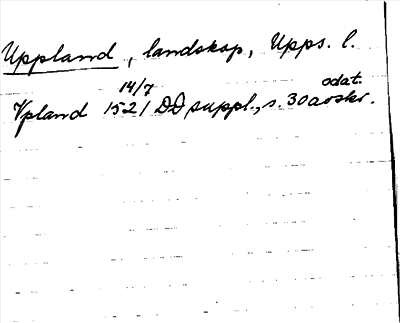 Uppland, landskap, Upps. l.
14/7 odat.
Vpland 1521 DD suppl., s. 30 avskr.